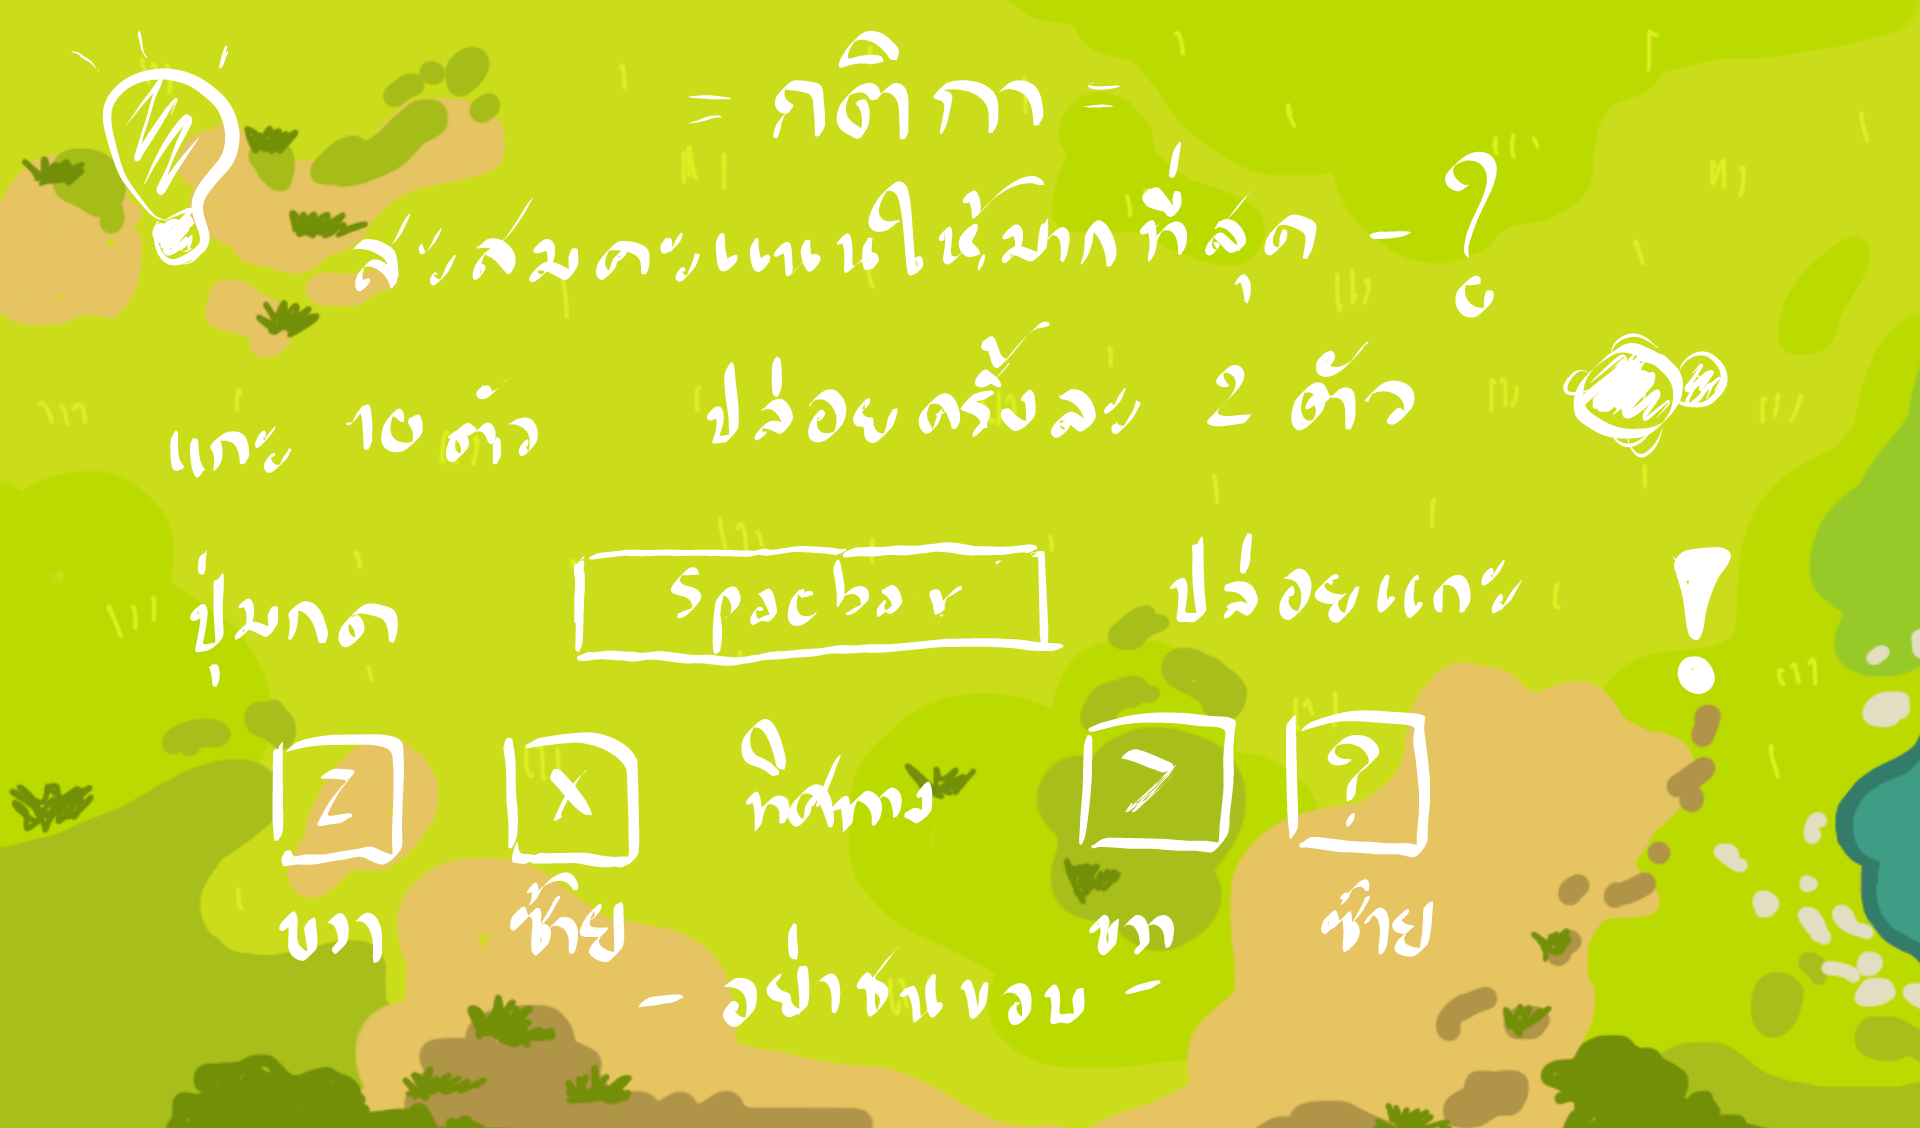 = กติกา =
สะสมคะแนนให้มากที่สุด - ?
แกะ 10 ตัว ปล่อยครั้งละ 2 ตัว
ปุ่มกด Spacbar ปล่อยแกะ !
Z X ทิศทาง > ?
ขวา ซ้าย ขวา ซ้าย
- อย่าชนขอบ -